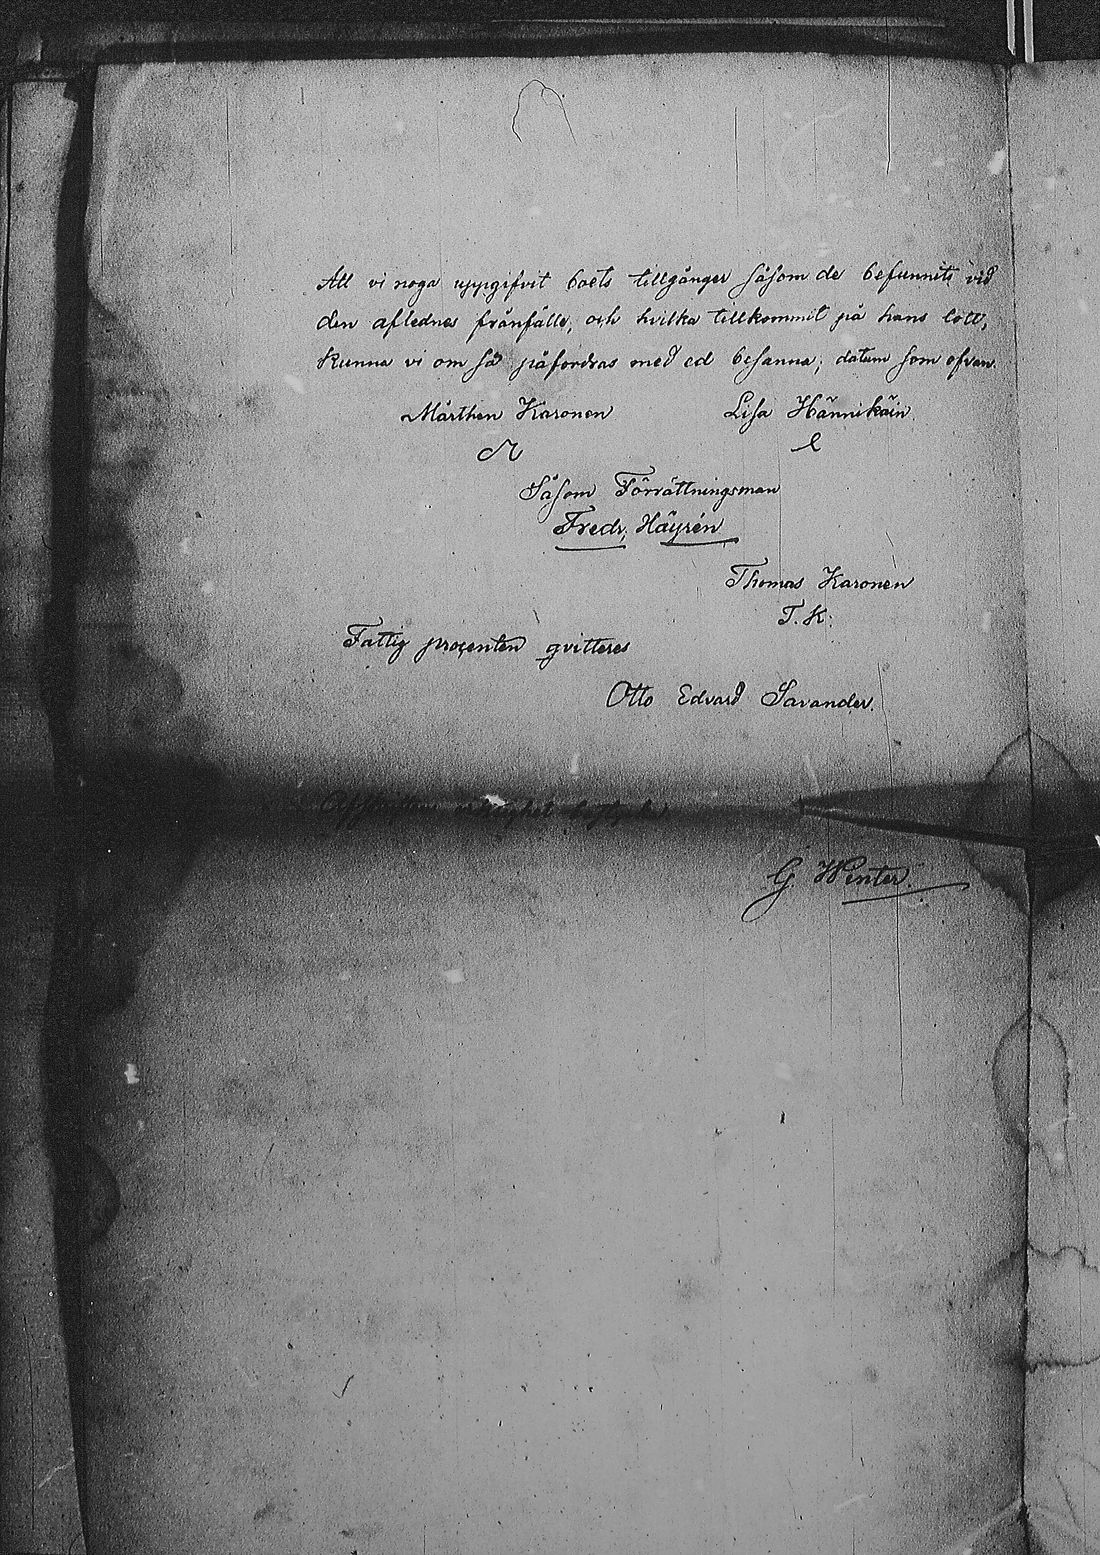 Att vi noga uppgifvit boets tillgånger såsom de befunnits vid
den aflednes frånfälle, och hvilka tillkommit på hans lott,
kunna vi om så påfordras med ed besanna; datum som ofvan.
Mårthen Karonen Lisa Hännikäin
M L
Såsom Förrättningsman
Fredr. Häyrén
Thomas Karonen
T. K.
Fattig procenten qvitteres
Otto Edvard Savander.
riktighet
G Winter.